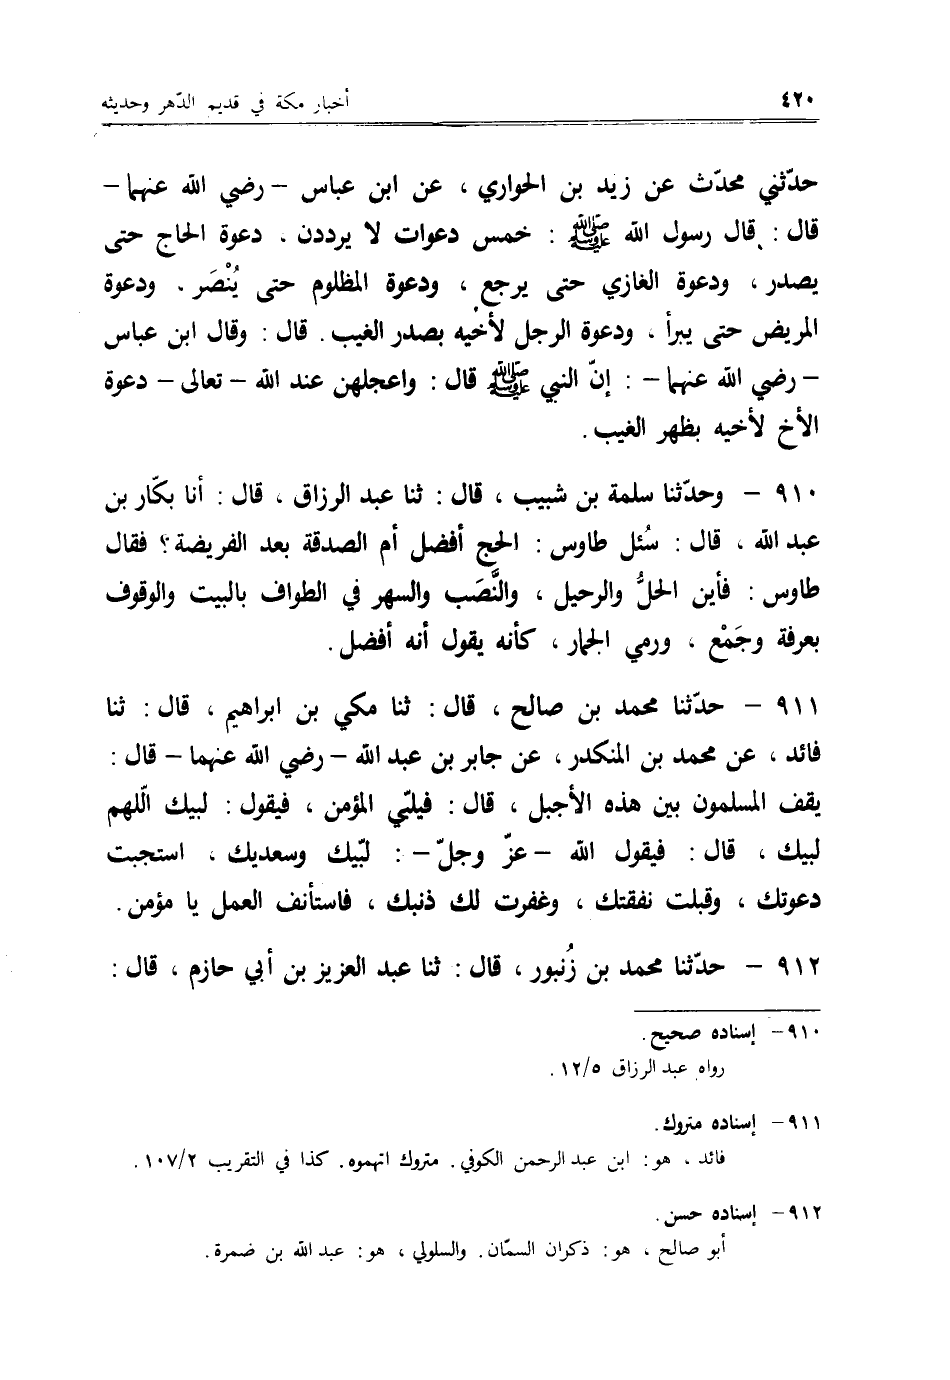 ٤٢٠ أخبار مكة في قديم الدّهر وحديثه
حدّثني محدّث عن زيد بن الحواري ، عن ابن عباس – رضي الله عنهما –
قال : قال رسول الله ﷺ : خمس دعوات لا يرددن . دعوة الحاج حتى
يصدر ، ودعوة الغازي حتى يرجع ، ودعوة المظلوم حتى يُنْصَر . ودعوة
المريض حتى يبرأ ، ودعوة الرجل لأخيه بصدر الغيب . قال : وقال ابن عباس
– رضي الله عنهما – : إنّ النبي ﷺ قال : واعجلهن عند الله – تعالى – دعوة
الأخ لأخيه بظهر الغيب .
٩١٠ – وحدّثنا سلمة بن شبيب ، قال : ثنا عبد الرزاق ، قال : أنا بكّار بن
عبد الله ، قال : سُئل طاوس : الحج أفضل أم الصدقة بعد الفريضة ؟ فقال
طاوس : فأين الحلُّ والرحيل ، والنَّصَب والسهر في الطواف بالبيت والوقوف
بعرفة وجَمْع ، ورمي الجمار ، كأنه يقول أنه أفضل .
٩١١ – حدّثنا محمد بن صالح ، قال : ثنا مكي بن ابراهيم ، قال : ثنا
فائد ، عن محمد بن المنكدر ، عن جابر بن عبد الله – رضي الله عنهما – قال :
يقف المسلمون بين هذه الأجبل ، قال : فيلبّي المؤمن ، فيقول : لبيك الّلهم
لبيك ، قال : فيقول الله – عزّ وجلّ – : لبّيك وسعديك ، استجبت
دعوتك ، وقبلت نفقتك ، وغفرت لك ذنبك ، فاستأنف العمل يا مؤمن .
٩١٢ – حدّثنا محمد بن زُنبور ، قال : ثنا عبد العزيز بن أبي حازم ، قال :
٩١٠ – إسناده صحيح .
رواه عبد الرزاق ١٢/٥ .
٩١١ – إسناده متروك .
فائد ، هو : ابن عبد الرحمن الكوفي . متروك اتهموه . كذا في التقريب ١٠٧/٢ .
٩١٢ – إسناده حسن .
أبو صالح ، هو : ذكران السمّان . والسلولي ، هو : عبد الله بن ضمرة .